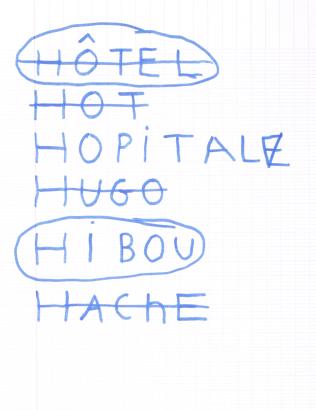 HÔTEL
HOT
HOPiTALE
HUGO
HiBOU
HAChE